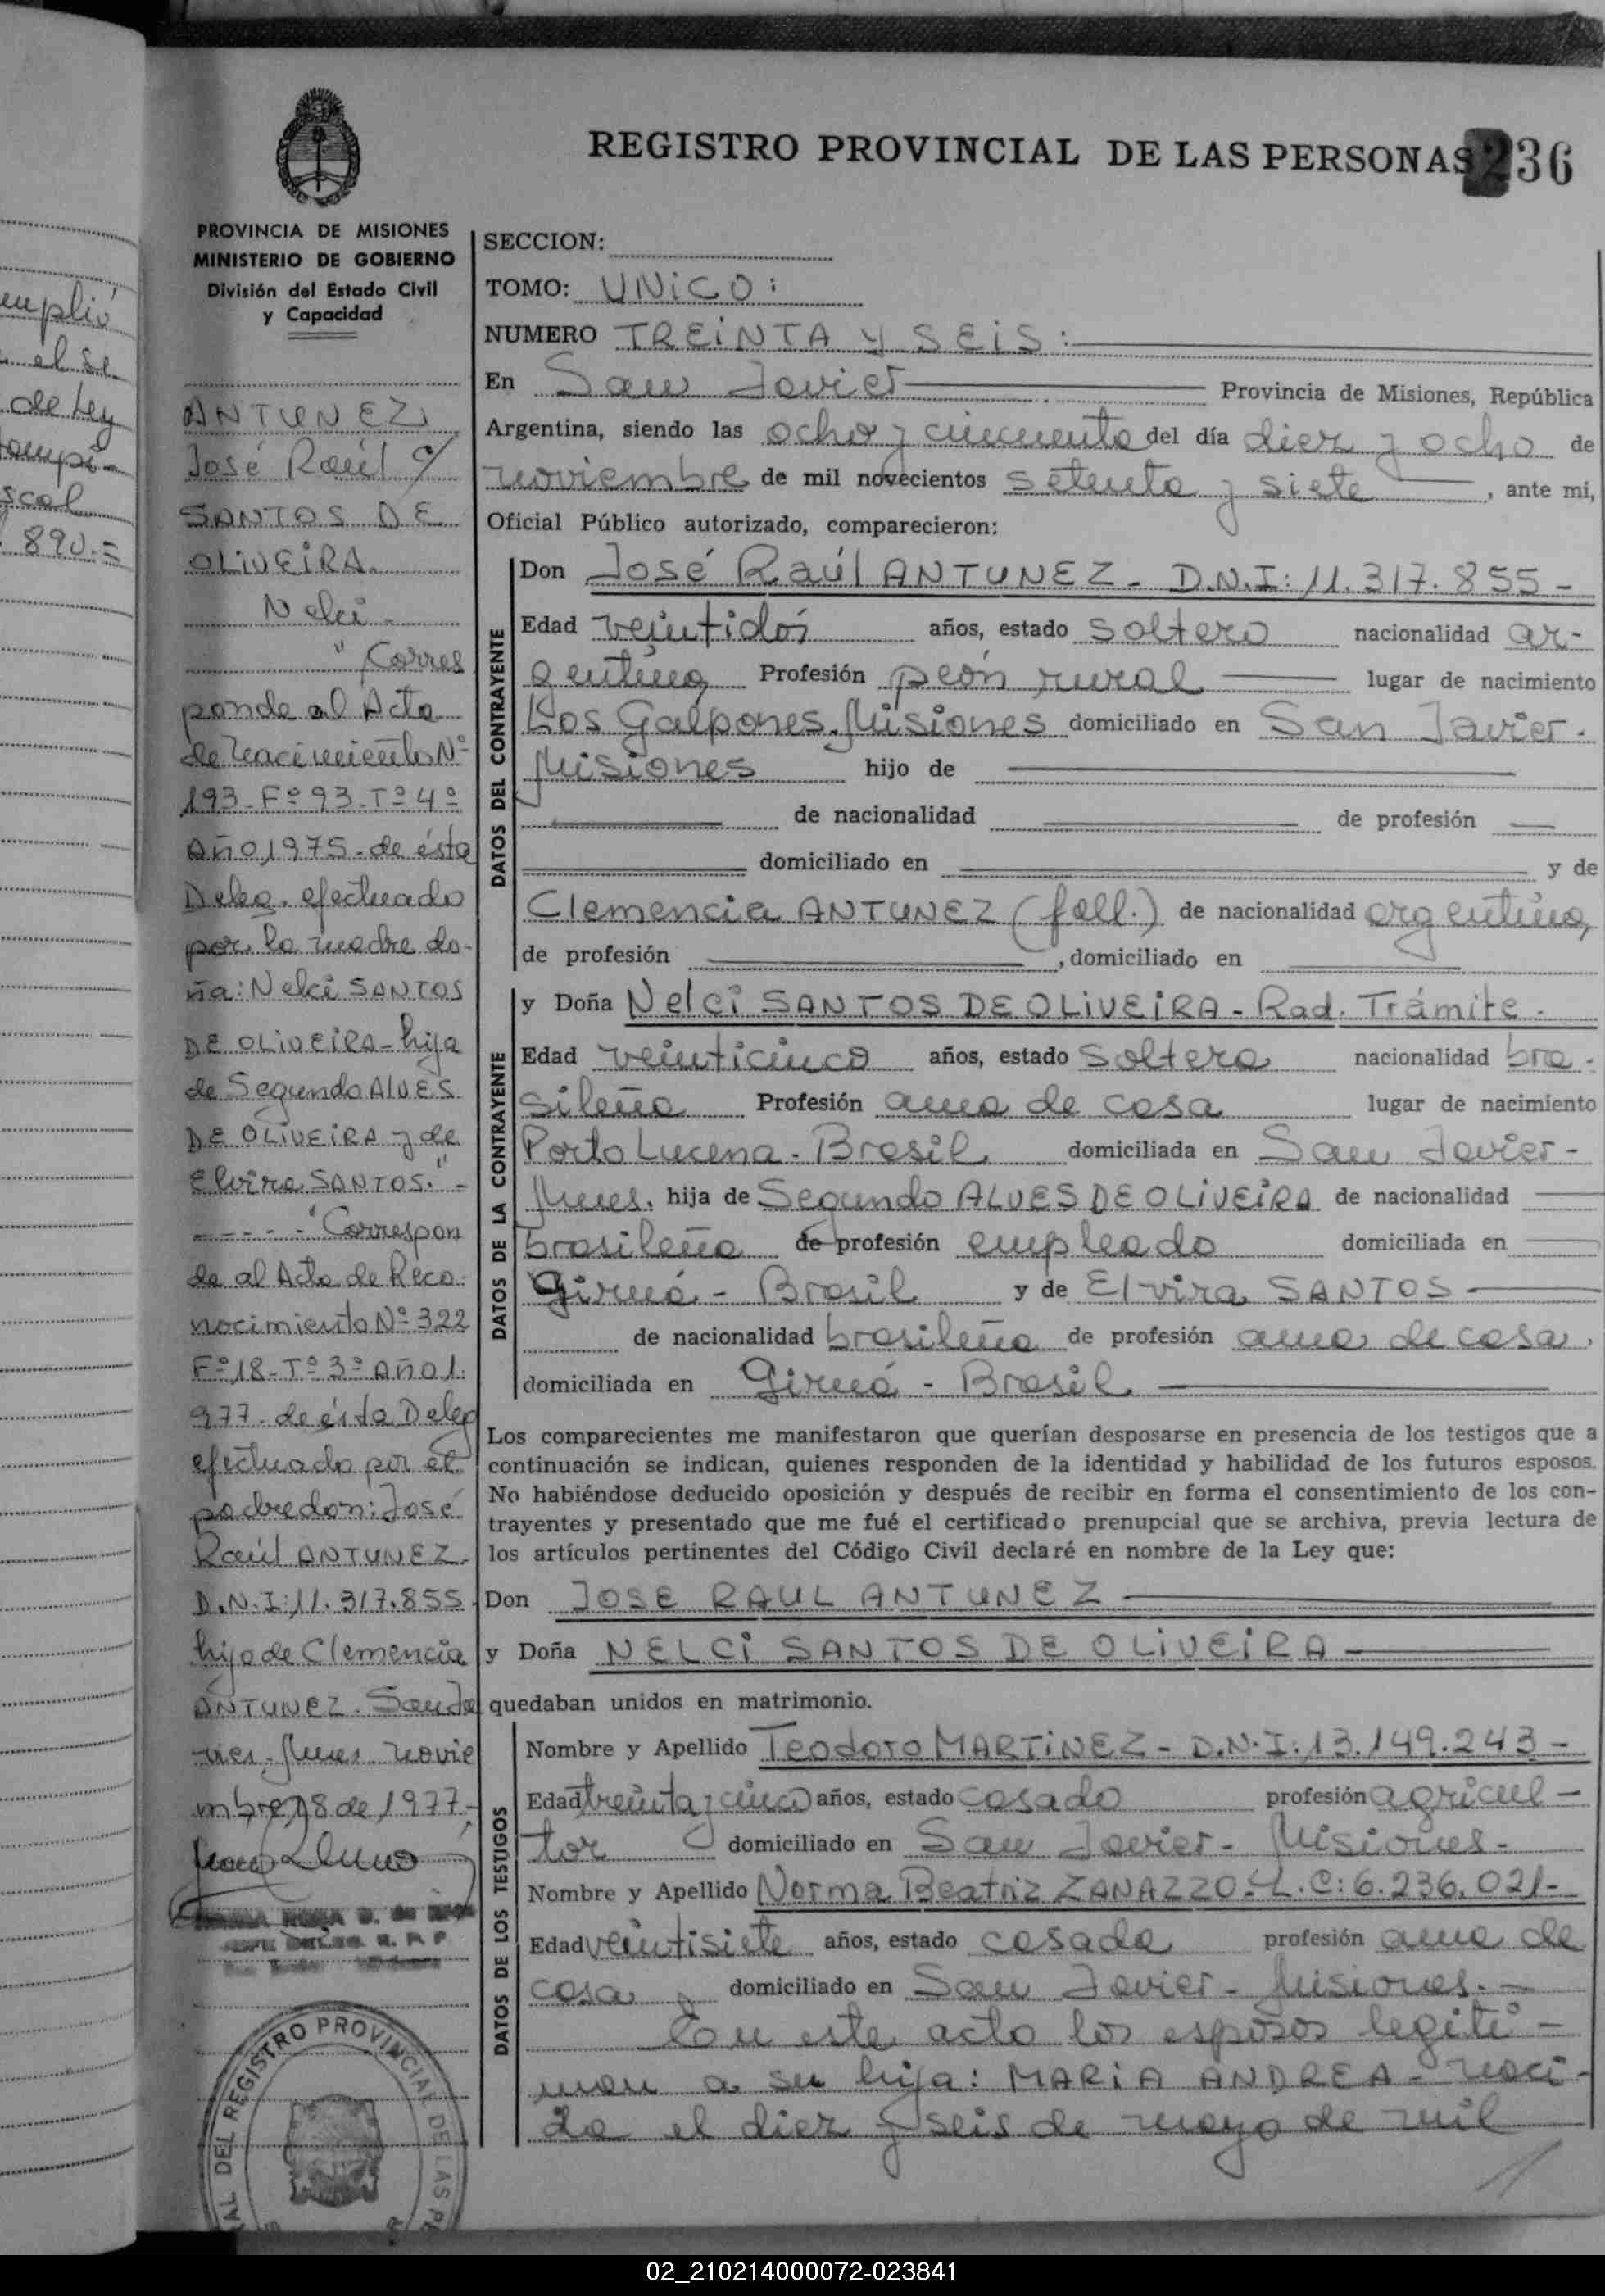 REGISTRO PROVINCIAL DE LAS PERSONAS 236
PROVINCIA DE MISIONES
MINISTERIO DE GOBIERNO
División del Estado Civil
y Capacidad
ANTUNEZ
José Raúl c/
SANTOS DE
OLIVEIRA
Nelci.
"Corres
ponde al Acta
de Nacimiento Nº
193-Fº93-Tº4º
Año 1975-de ésta
Deleg. efectuado
por la madre do-
ña: Nelci SANTOS
DE OLIVEIRA-hija
de Segundo ALVES
DE OLIVEIRA y de
Elvira SANTOS."-
-----"Correspon
de al Acta de Reco-
nocimiento Nº322
Fº18-Tº3º Año 1.
977-de ésta Deleg
efectuado por el
padre don: José
Raúl ANTUNEZ.
D.N.I: 11.317.855
hijo de Clemencia
ANTUNEZ. San Ja
vier. Mnes. novie
mbre 18 de 1977.-
REGISTRO PROVINCIAL DE LAS
SECCION:
TOMO: UNICO:
NUMERO TREINTA Y SEIS:
En San Javier Provincia de Misiones, República
Argentina, siendo las ocho y cincuenta del día diez y ocho de
noviembre de mil novecientos setenta y siete, ante mi,
Oficial Público autorizado, comparecieron:
DATOS DEL CONTRAYENTE
Don José Raúl ANTUNEZ - D.N.I: 11.317.855-
Edad veintidós años, estado soltero nacionalidad ar-
gentina Profesión peón rural lugar de nacimiento
Los Galpones. Misiones domiciliado en San Javier.
Misiones hijo de
de nacionalidad de profesión
domiciliado en y de
Clemencia ANTUNEZ (fall.) de nacionalidad argentina,
de profesión , domiciliado en
DATOS DE LA CONTRAYENTE
y Doña Nelci SANTOS DE OLIVEIRA - Rad. Trámite.
Edad veinticinco años, estado soltera nacionalidad bra-
sileña Profesión ama de casa lugar de nacimiento
Porto Lucena - Brasil domiciliada en San Javier-
Mnes. hija de Segundo ALVES DE OLIVEIRA de nacionalidad
brasileña de profesión empleado domiciliada en
Giruá - Brasil y de Elvira SANTOS
de nacionalidad brasileña de profesión ama de casa,
domiciliada en Giruá - Brasil
Los comparecientes me manifestaron que querían desposarse en presencia de los testigos que a
continuación se indican, quienes responden de la identidad y habilidad de los futuros esposos.
No habiéndose deducido oposición y después de recibir en forma el consentimiento de los con-
trayentes y presentado que me fué el certificado prenupcial que se archiva, previa lectura de
los artículos pertinentes del Código Civil declaré en nombre de la Ley que:
Don JOSE RAUL ANTUNEZ
y Doña NELCI SANTOS DE OLIVEIRA
quedaban unidos en matrimonio.
DATOS DE LOS TESTIGOS
Nombre y Apellido Teodoro MARTINEZ - D.N.I: 13.149.243-
Edad treinta y cinco años, estado casado profesión agricul-
tor domiciliado en San Javier - Misiones-
Nombre y Apellido Norma Beatriz ZANAZZO-L.C: 6.236.021-
Edad veintisiete años, estado casada profesión ama de
casa domiciliado en San Javier - Misiones.-
En este acto los esposos legiti-
man a su hija: MARIA ANDREA - naci-
da el diez y seis de mayo de mil
02_210214000072-023841